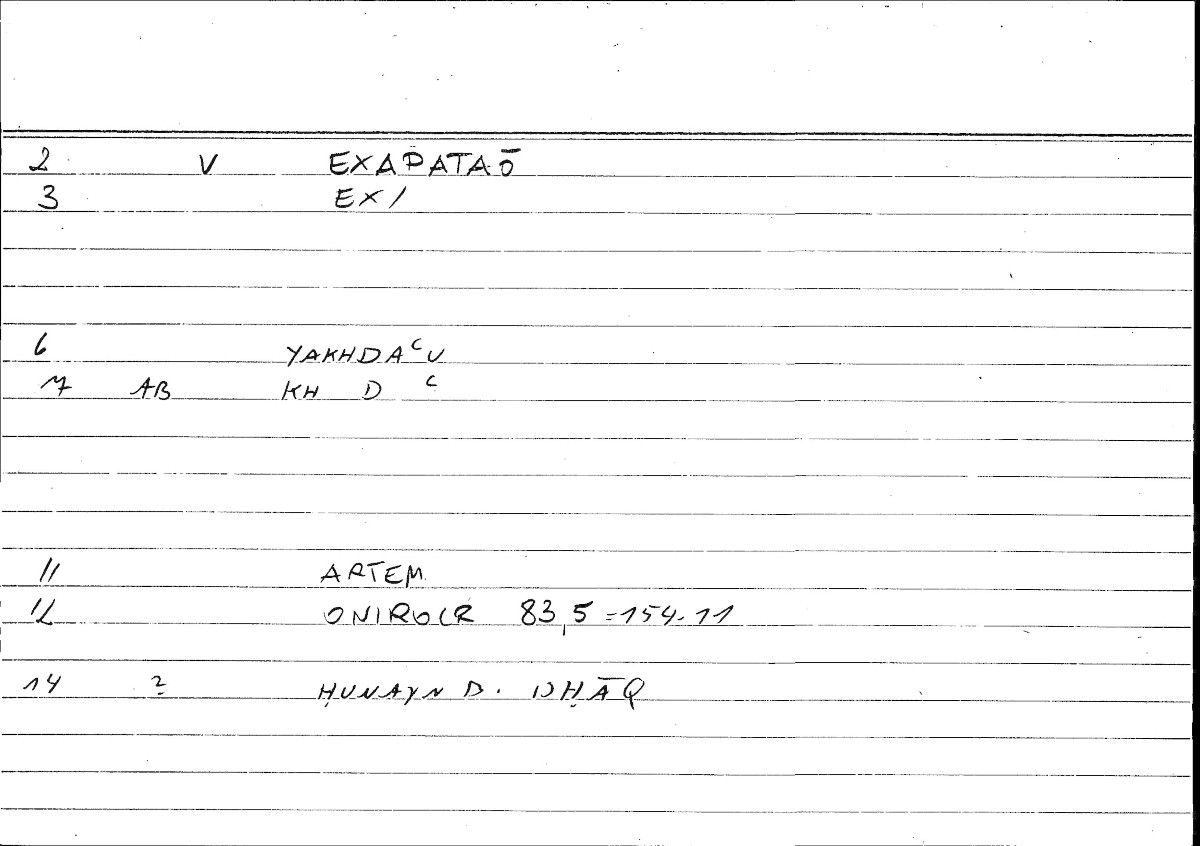 2 V EXAPATAŌ
3 EX/
6 YAKHDAᶜU
7 AB KH D ᶜ
11 ARTEM.
12 ONIROCR 83,5=154.11
14 ? ḤUNAYN B. ISḤĀQ